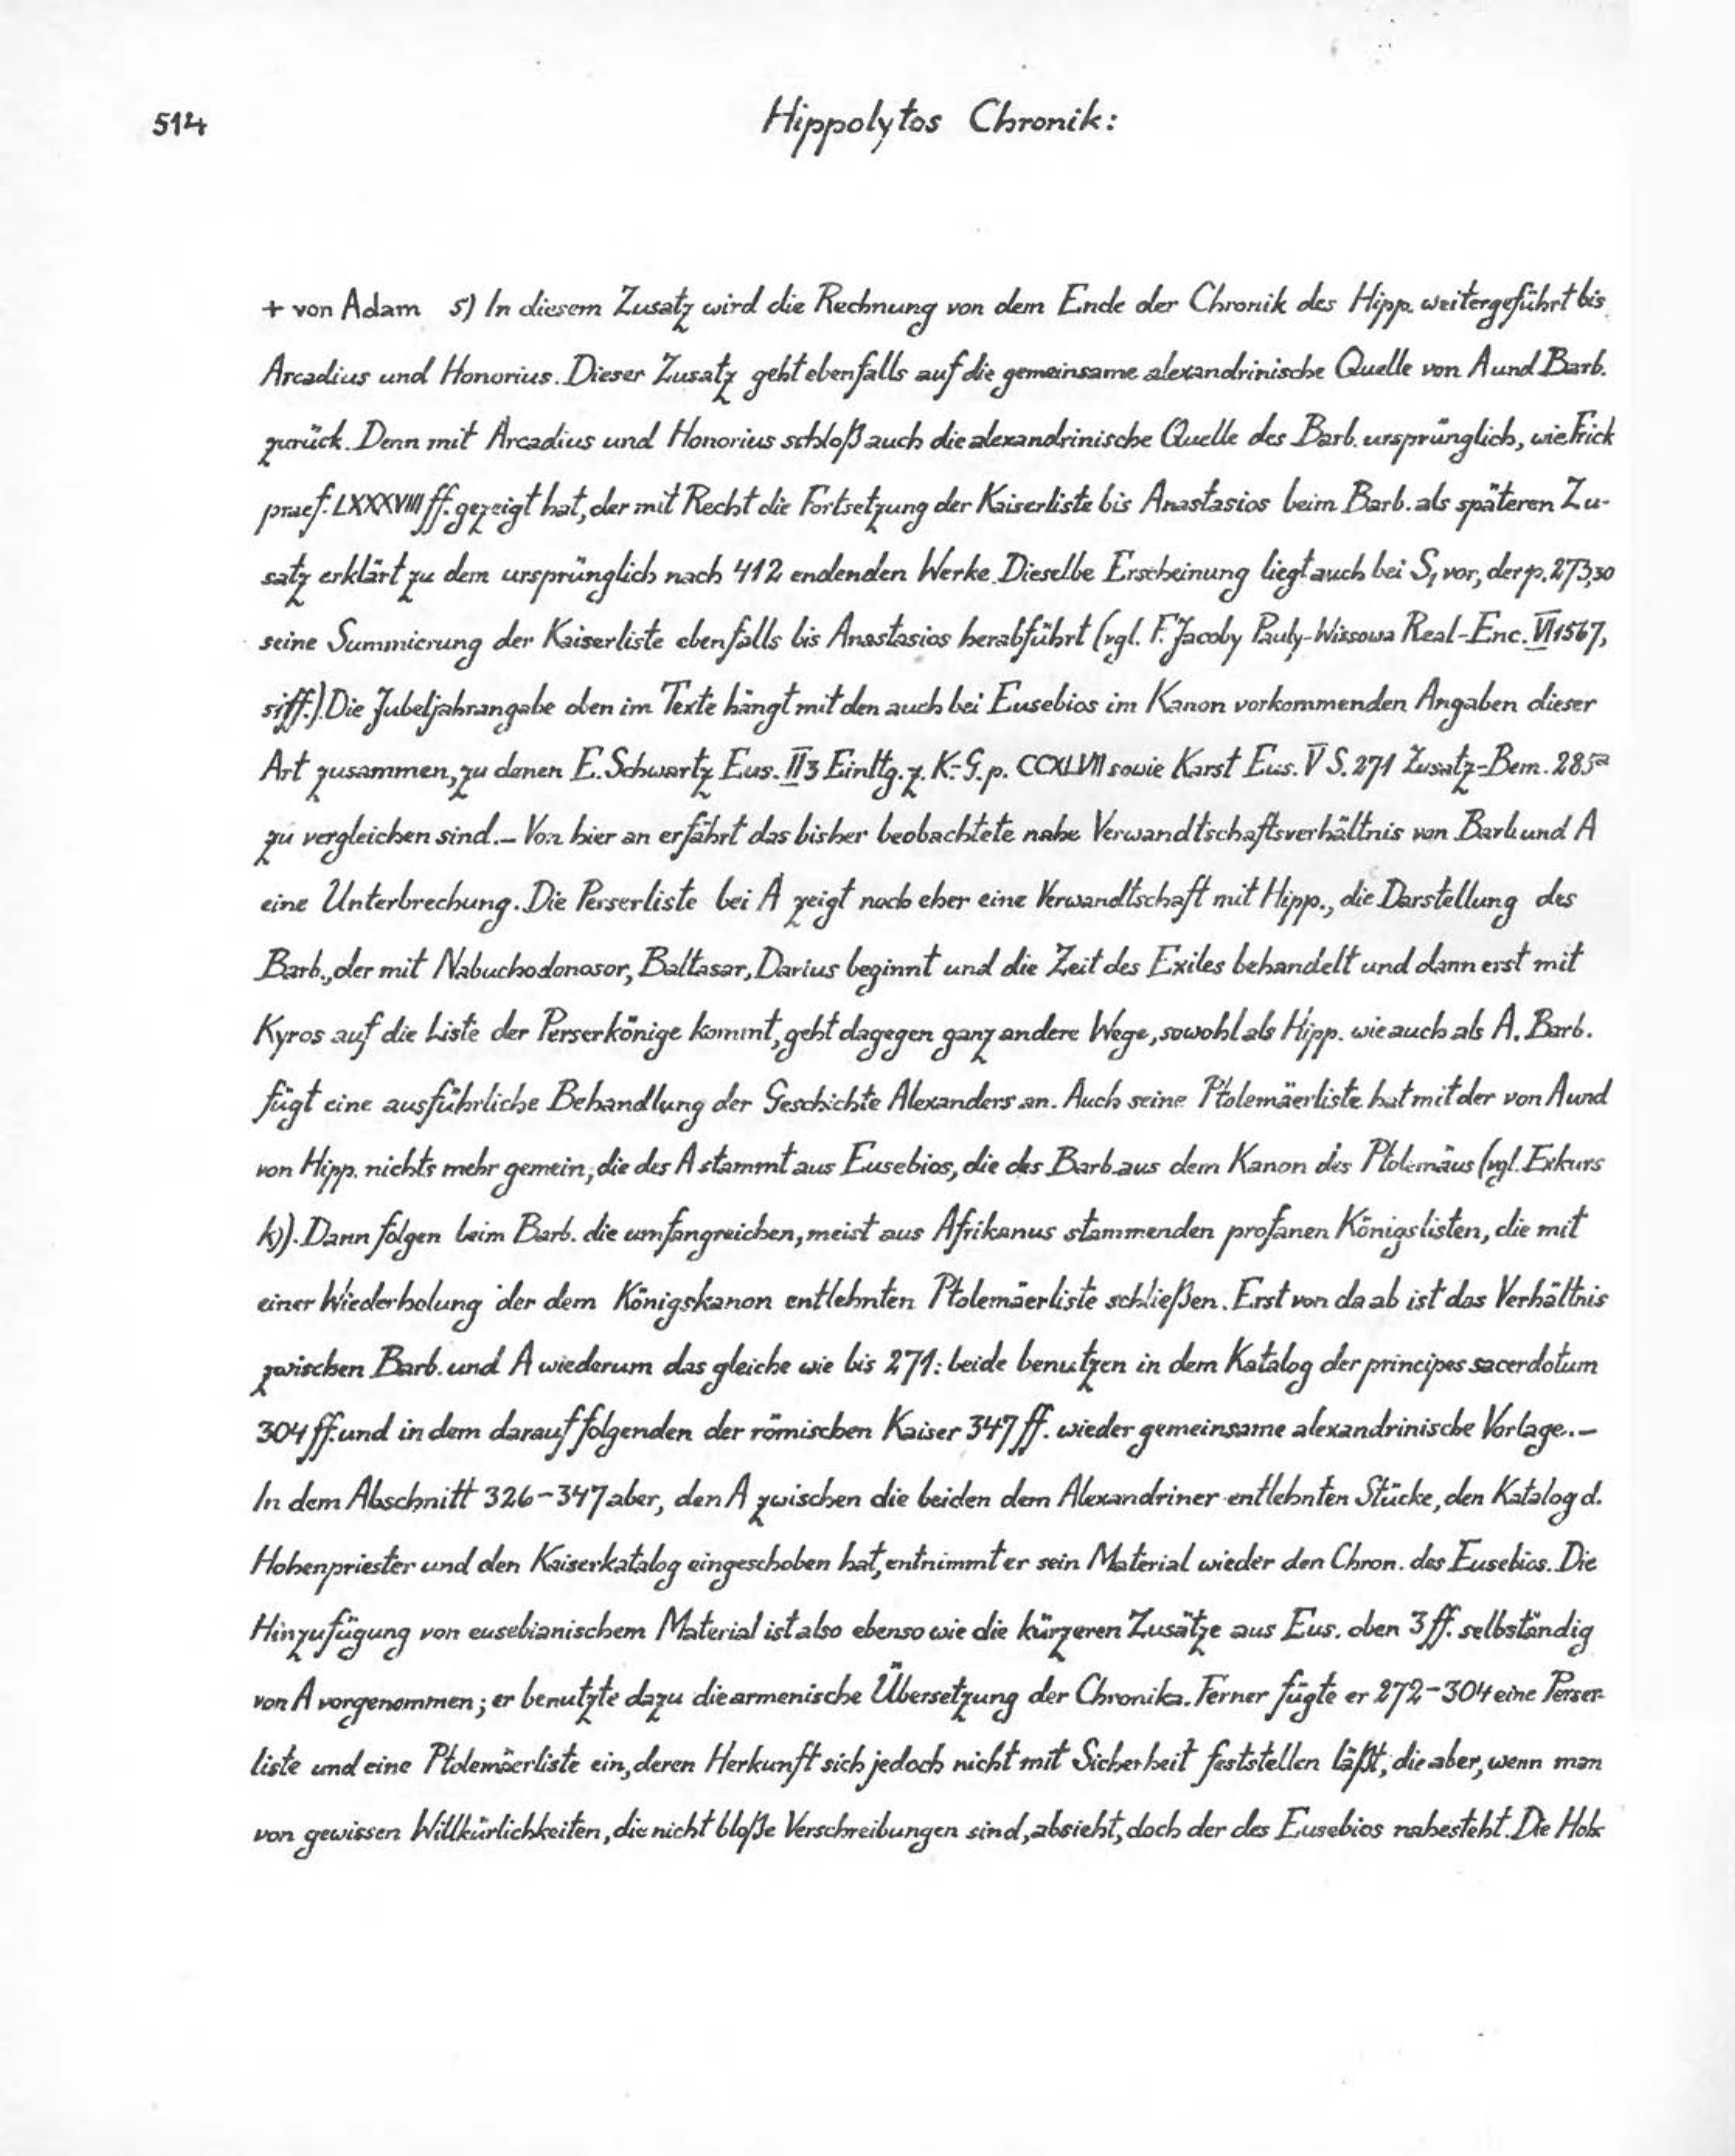 514
Hippolytos Chronik:
+ von Adam 5) In diesem Zusatz wird die Rechnung von dem Ende der Chronik des Hipp. weitergeführt bis
Arcadius und Honorius. Dieser Zusatz geht ebenfalls auf die gemeinsame alexandrinische Quelle von A und Barb.
zurück. Denn mit Arcadius und Honorius schloß auch die alexandrinische Quelle des Barb. ursprünglich, wie Frick
praef. LXXXVIII ff. gezeigt hat, der mit Recht die Fortsetzung der Kaiserliste bis Anastasios beim Barb. als späteren Zu-
satz erklärt zu dem ursprünglich nach 412 endenden Werke. Dieselbe Erscheinung liegt auch bei S, vor, der p. 273,30
seine Summierung der Kaiserliste ebenfalls bis Anastasios herabführt (vgl. F. Jacoby Pauly-Wissowa Real-Enc. VI 1567,
Die Jubeljahrangabe oben im Texte hängt mit den auch bei Eusebios im Kanon vorkommenden Angaben dieser
Art zusammen, zu denen E. Schwartz Eus. II 3 Einltg. z. K.-G. p. CCXLVII sowie Karst Eus. V S. 271 Zusatz-Bem. 285a
zu vergleichen sind. – Von hier an erfährt das bisher beobachtete nahe Verwandtschaftsverhältnis von Barb und A
eine Unterbrechung. Die Perserliste bei A zeigt noch eher eine Verwandtschaft mit Hipp., die Darstellung des
Barb., der mit Nabuchodonosor, Baltasar, Darius beginnt und die Zeit des Exiles behandelt und dann erst mit
Kyros auf die Liste der Perserkönige kommt, geht dagegen ganz andere Wege, sowohl als Hipp. wie auch als A. Barb.
fügt eine ausführliche Behandlung der Geschichte Alexanders an. Auch seine Ptolemäerliste hat mit der von A und
von Hipp. nichts mehr gemein; die des A stammt aus Eusebios, die des Barb. aus dem Kanon des Ptolemäus (vgl. Exkurs
k)). Dann folgen beim Barb. die umfangreichen, meist aus Afrikanus stammenden profanen Königslisten, die mit
einer Wiederholung der dem Königskanon entlehnten Ptolemäerliste schließen. Erst von da ab ist das Verhältnis
zwischen Barb. und A wiederum das gleiche wie bis 271: beide benutzen in dem Katalog der principes sacerdotum
304 ff. und in dem darauf folgenden der römischen Kaiser 347 ff. wieder gemeinsame alexandrinische Vorlage. –
In dem Abschnitt 326–347 aber, den A zwischen die beiden dem Alexandriner entlehnten Stücke, den Katalog d.
Hohenpriester und den Kaiserkatalog eingeschoben hat, entnimmt er sein Material wieder den Chron. des Eusebios. Die
Hinzufügung von eusebianischem Material ist also ebenso wie die kürzeren Zusätze aus Eus. oben 3 ff. selbständig
von A vorgenommen; er benutzte dazu die armenische Übersetzung der Chronika. Ferner fügte er 272–304 eine Perser-
liste und eine Ptolemäerliste ein, deren Herkunft sich jedoch nicht mit Sicherheit feststellen läßt, die aber, wenn man
von gewissen Willkürlichkeiten, die nicht bloße Verschreibungen sind, absieht, doch der des Eusebios nahesteht. Die